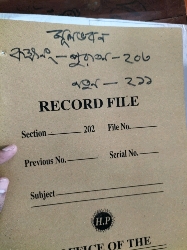 মূলভবন
কক্ষনং-পুরাতন-২০৬
নতুন-২১১
RECORD FILE
Section 202 File No.
Previous No. Serial No.
Subject
H.P
OFFICE OF THE